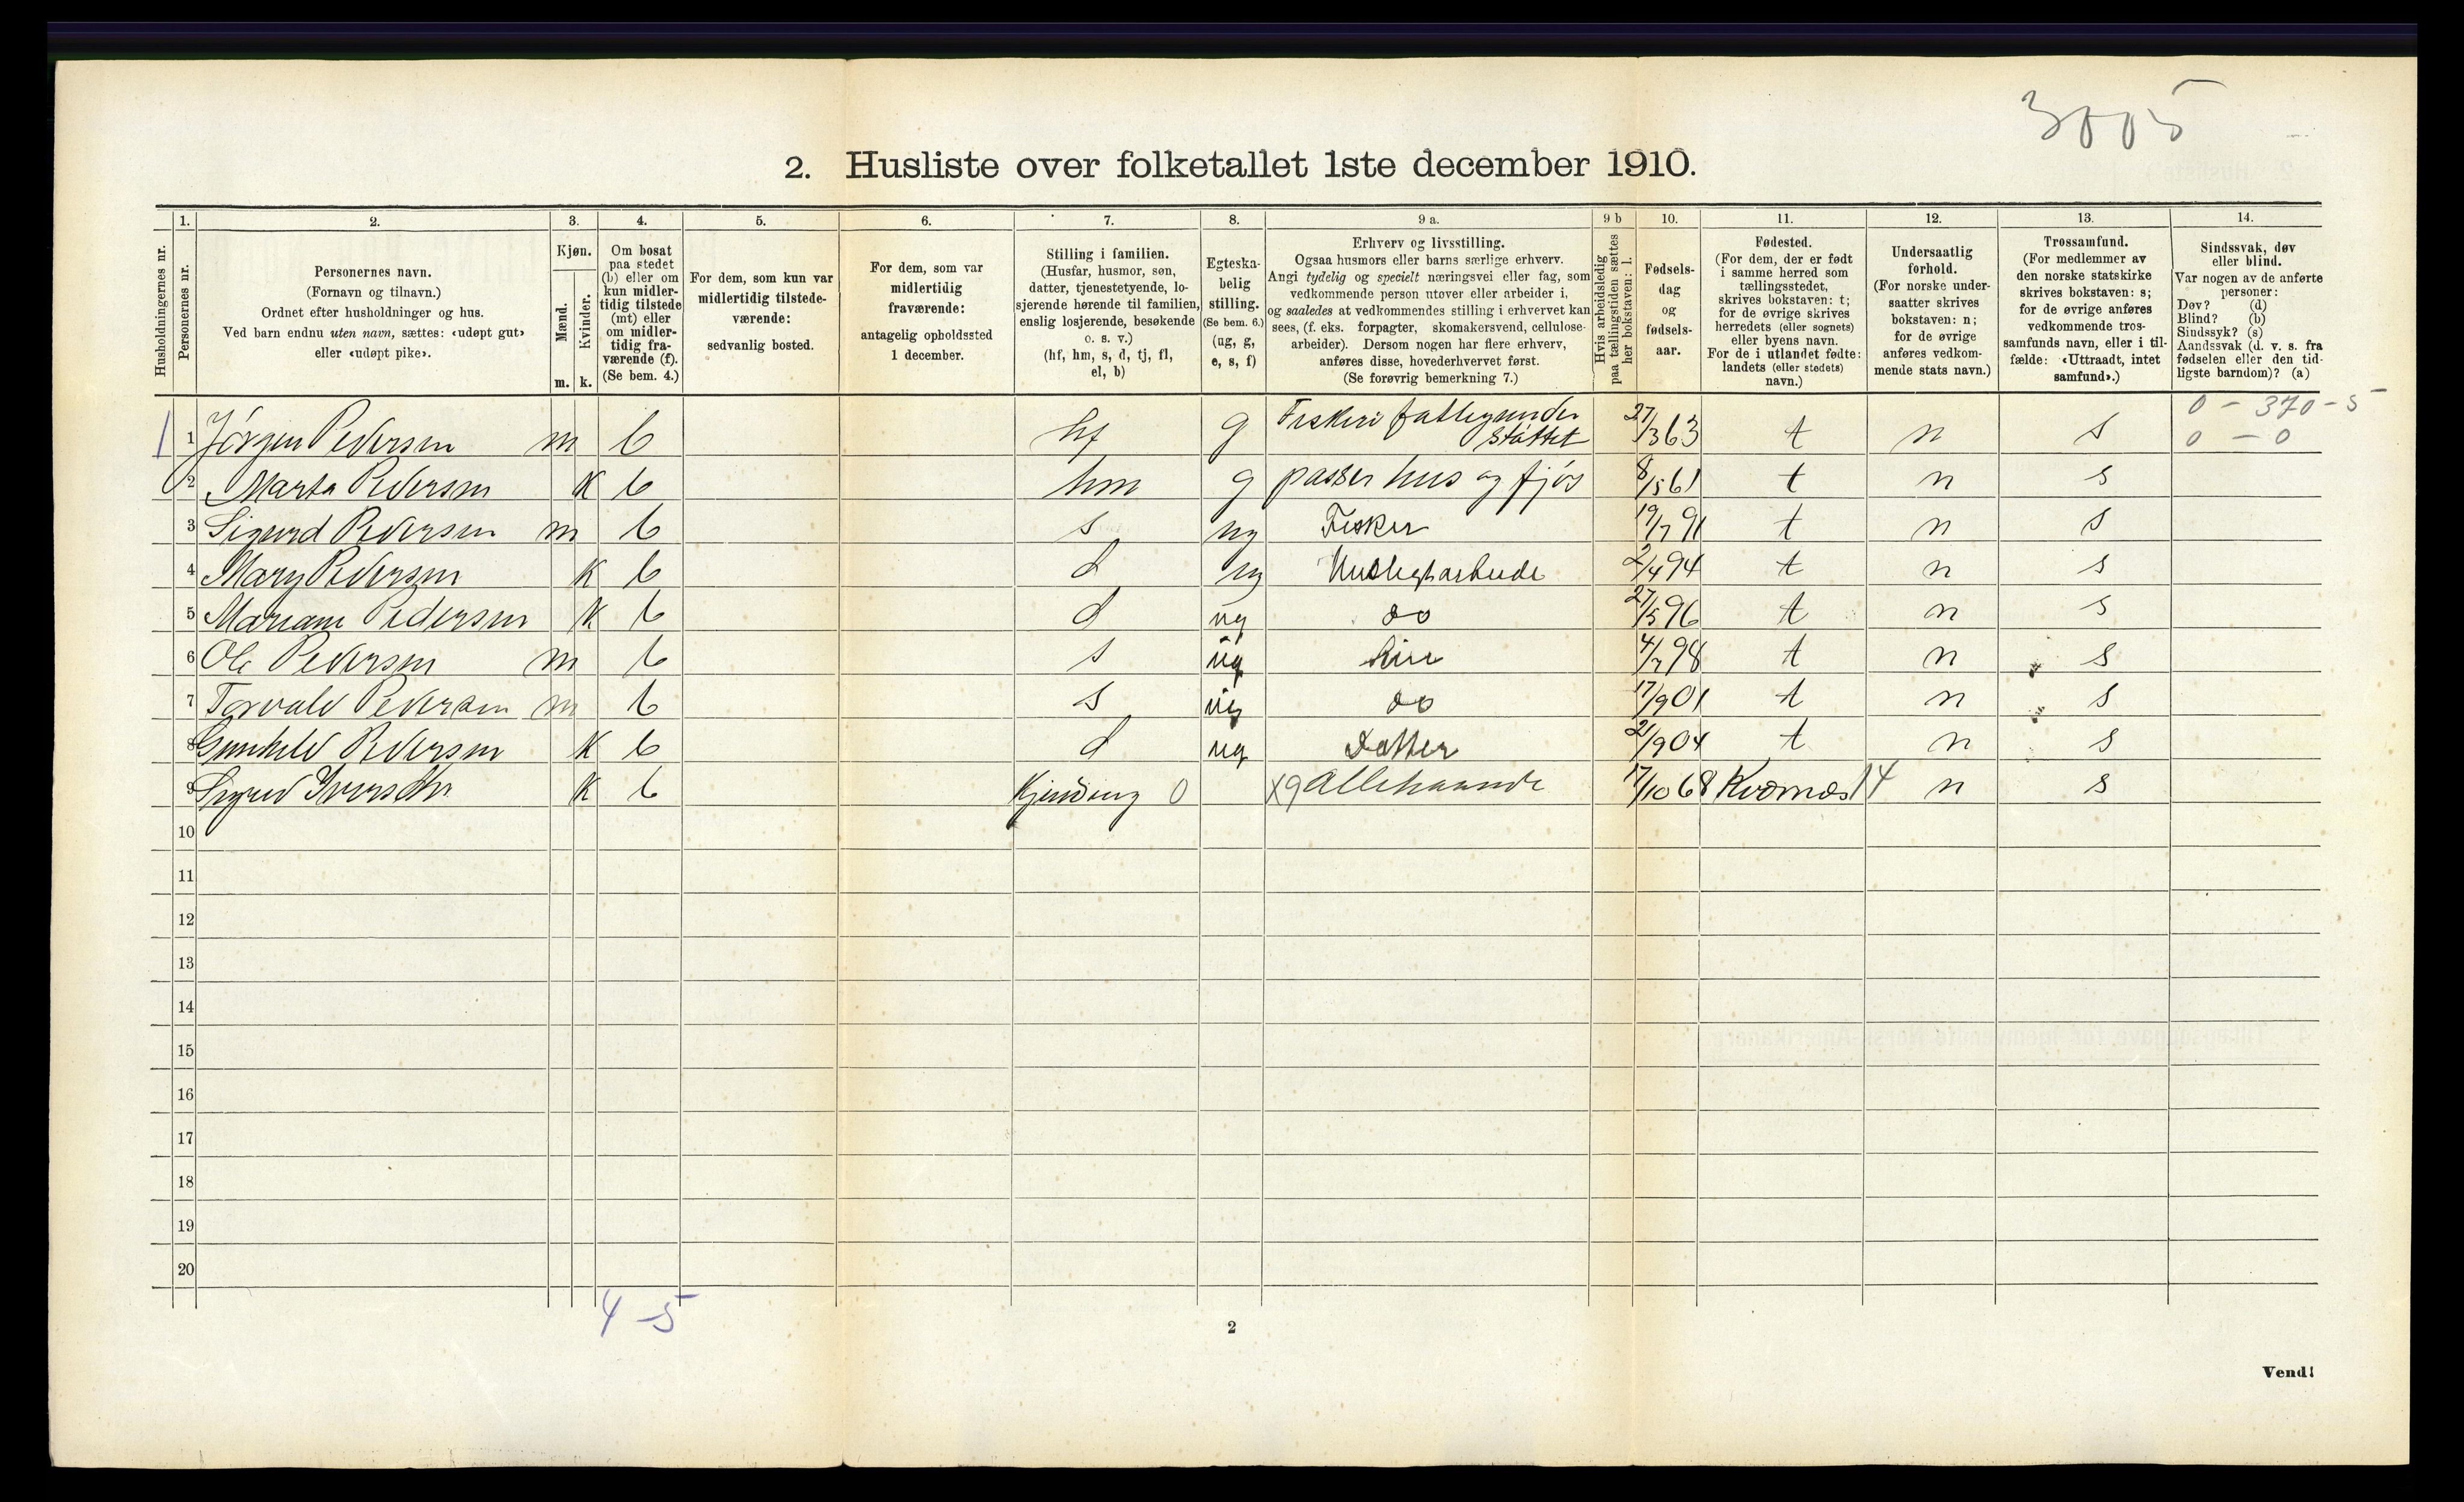 3005
2. Husliste over folketallet 1ste december 1910.
Husholdningernes nr.
1.
Personernes nr.
2.
Personernes navn.
(Fornavn og tilnavn.)
Ordnet efter husholdninger og hus.
Ved barn endnu uten navn, sættes: «udøpt gut»
eller «udøpt pike».
3.
Kjøn.
Mænd.
Kvinder.
m. k.
4.
Om bosat
paa stedet
(b) eller om
kun midler-
tidig tilstede
(mt) eller
om midler-
tidig fra-
værende (f).
(Se bem. 4.)
5.
For dem, som kun var
midlertidig tilstede-
værende:
sedvanlig bosted.
6.
For dem, som var
midlertidig
fraværende:
antagelig opholdssted
1 december.
7.
Stilling i familien.
(Husfar, husmor, søn,
datter, tjenestetyende, lo-
sjerende hørende til familien,
enslig losjerende, besøkende
o. s. v.)
(hf, hm, s, d, tj, fl,
el, b)
8.
Egteska-
belig
stilling.
(Se bem. 6.)
(ug, g,
e, s, f)
9 a.
Erhverv og livsstilling.
Ogsaa husmors eller barns særlige erhverv.
Angi tydelig og specielt næringsvei eller fag, som
vedkommende person utøver eller arbeider i,
og saaledes at vedkommendes stilling i erhvervet kan
sees, (f. eks. forpagter, skomakersvend, cellulose-
arbeider). Dersom nogen har flere erhverv,
anføres disse, hovederhvervet først.
(Se forøvrig bemerkning 7.)
9 b
Hvis arbeidsledig
paa tællingstiden sættes
her bokstaven: l.
10.
Fødsels-
dag
og
fødsels-
aar.
11.
Fødested.
(For dem, der er født
i samme herred som
tællingsstedet,
skrives bokstaven: t;
for de øvrige skrives
herredets (eller sognets)
eller byens navn.
For de i utlandet fødte:
landets (eller stedets)
navn.)
12.
Undersaatlig
forhold.
(For norske under-
saatter skrives
bokstaven: n;
for de øvrige
anføres vedkom-
mende stats navn.)
13.
Trossamfund.
(For medlemmer av
den norske statskirke
skrives bokstaven: s;
for de øvrige anføres
vedkommende tros-
samfunds navn, eller i til-
fælde: «Uttraadt, intet
samfund».)
14.
Sindssvak, døv
eller blind.
Var nogen av de anførte
personer:
Døv? (d)
Blind? (b)
Sindssyk? (s)
Aandssvak (d. v. s. fra
fødselen eller den tid-
ligste barndom)? (a)
0 - 370 - 5
0 - 0
1 1 Jørgen Pedersen m b hf g Fiskeri fattigunder støttet 27/3 63 t n s
2 Marta Pedersen K b hm g passer hus og fjøs 8/5 61 t n s
3 Sigurd Pedersen m b s ug Fisker 19/7 91 t n s
4 Mary Pedersen K b d ug Husligtarbeide 2/4 94 t n s
5 Mariane Pedersen K b d ug do 27/5 96 t n s
6 Ole Pedersen m b s ug 4/7 98 t n s
7 Torvald Pedersen m b s ug do 17/9 01 t n s
8 Gunhild Pedersen K b d ug Datter 2/9 04 t n s
9 Sigrid Iversdtr K b 0 xg Allehaande 17/10 68 Kvernes 14 n s
10
11
12
13
14
15
16
17
18
19
20
4-5
2
Vend!